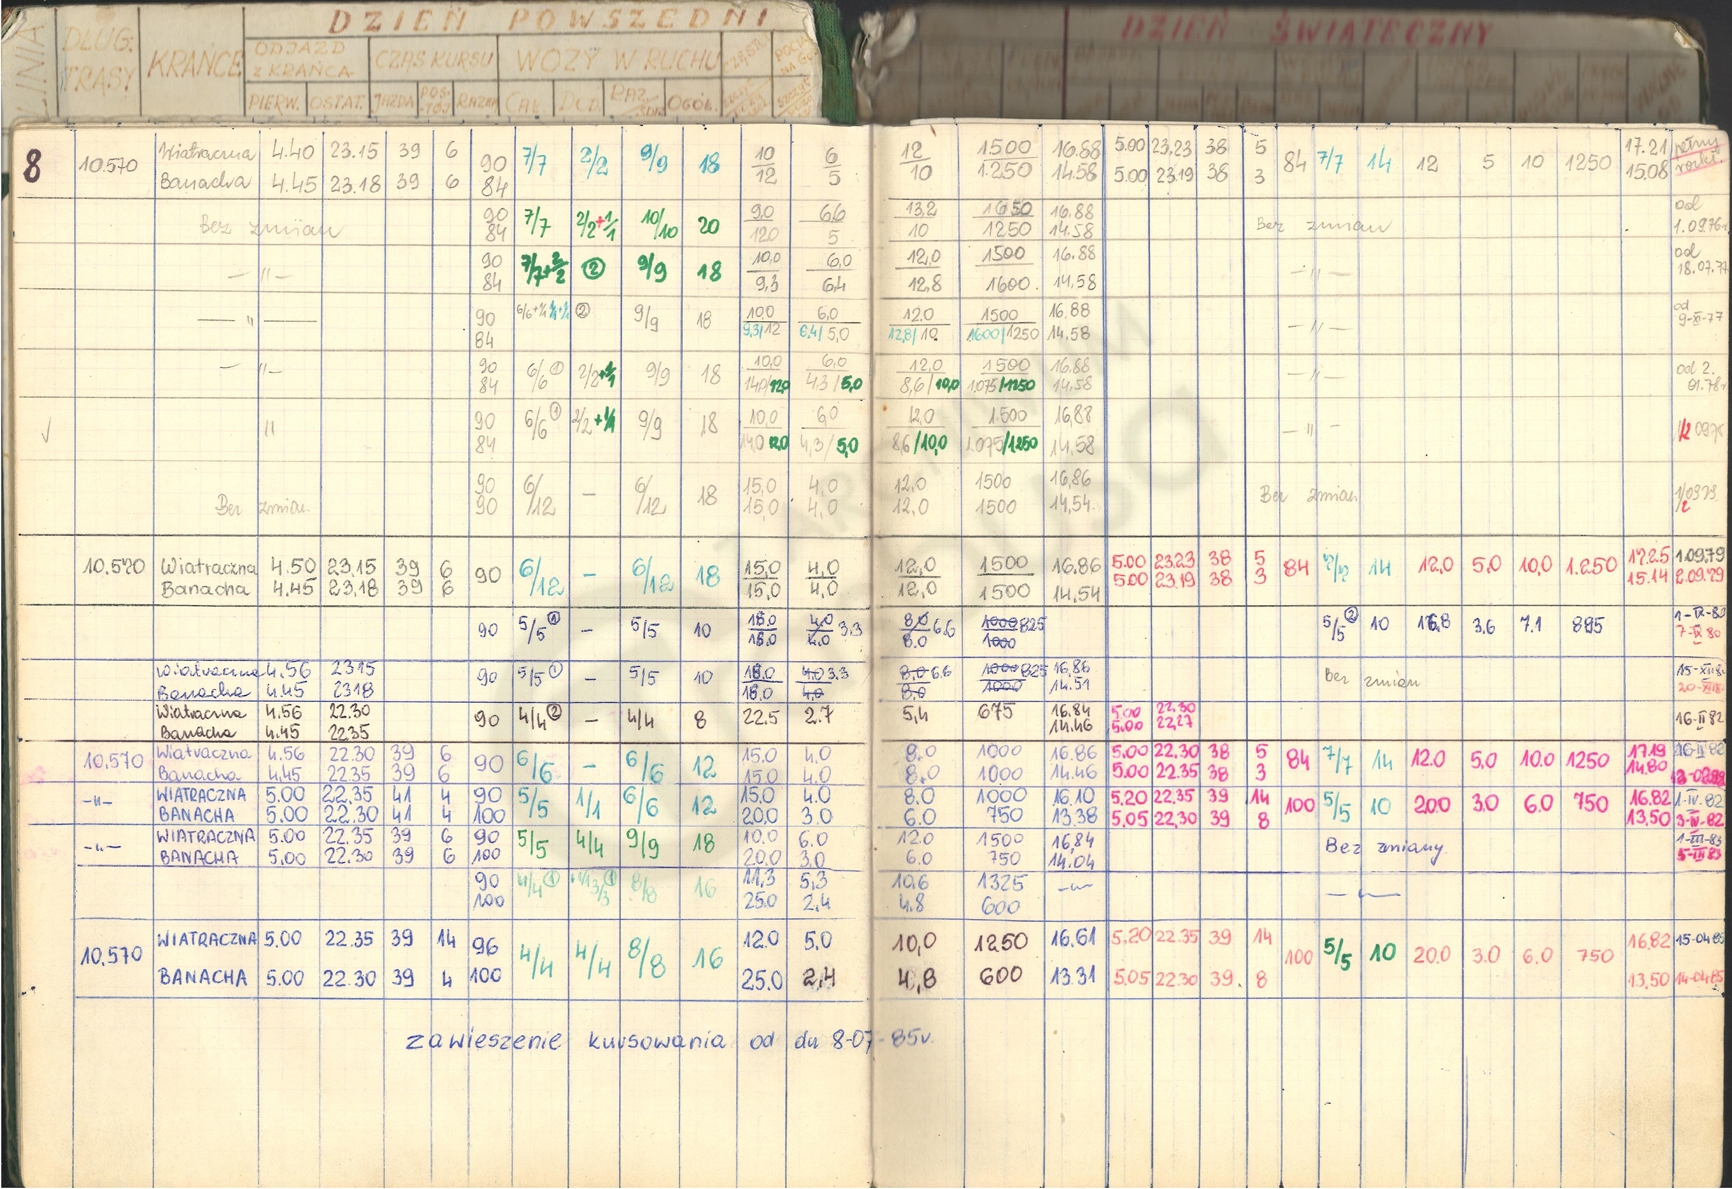 DZIEŃ POWSZEDNI DZIEŃ ŚWIĄTECZNY
LINIA DŁUG. TRASY KRAŃCE ODJAZD z KRAŃCA CZAS KURSU WOZY W RUCHU
PIERW. OSTAT. JAZDA POSTÓJ RAZEM CAŁ. DOD. RAZ. OGÓŁ.
8 10.570 Wiatraczna 4.40 23.15 39 6 90 7/7 2/2 9/9 18 10 6 12 1500 16.88 5.00 23.23 38 5 84 7/7 14 12 5 10 1250 17.21 pełny
Banacha 4.45 23.18 39 6 84 12 5 10 1.250 14.58 5.00 23.19 38 3 15.08
Bez zmian 90 7/7 2/2+1/1 10/10 20 9.0 6,6 13,2 1650 16.88 Bez zmian od
84 12.0 5 10 1250 14.58 1.09.76
—"— 90 7/7+2/2 ② 9/9 18 10,0 6,0 12,0 1500 16.88 —"— od
84 9,3 6,4 12,8 1600. 14,58 18.07.77
—"— 90 ② 9/9 18 10,0 6,0 12.0 1500 16,88 —"— od
84 9,3/12 6,4/5,0 12,8/10 1600/1250 14,58 9-XI-77
—"— 90 6/6① 2/2+1/1 9/9 18 10,0 6,0 12,0 1500 16.88 —"— od 2.
84 14,0/12,0 4,3/5,0 8,6/10,0 1.075/1250 14.58 01.78
" 90 6/6① 2/2+1/1 9/9 18 10,0 6,0 12,0 1.500 16,88 —"—
84 14,0 12,0 4,3/5,0 8,6/10,0 1.075/1250 14,58
Bez zmian 90 6/12 — 6/12 18 15,0 4,0 12,0 1500 16,86 Bez zmian
90 15,0 4,0 12,0 1500 14,54
10.570 Wiatraczna 4.50 23.15 39 6 90 6/12 — 6/12 18 15,0 4,0 12,0 1500 16.86 5.00 23.23 38 5 84 7/7 14 12,0 5,0 10,0 1.250 17.25 1.09.79
Banacha 4.45 23.18 39 6 15,0 4,0 12,0 1500 14.54 5.00 23.19 38 3 15.14 2.09.79
90 5/5① — 5/5 10 18.0 4,0 3,3 8,0 6.6 1000 825 5/5② 10 16,8 3,6 7.1 895 1-IX-80
18.0 4.0 8.0 1000 7-IX 80
Wiatraczna 4.56 2315 90 5/5① — 5/5 10 18.0 4.0 3.3 8,0 6.6 1000 825 16,86 Bez zmian
Banacha 4.45 2318 18.0 4,0 8,0 1000 14.51
Wiatraczna 4.56 22.30 90 4/4② — 4/4 8 22.5 2.7 5,4 675 16,84 5.00 22.30 16-II 82
Banacha 4.45 22.35 14.46 5.00 22.27
10.570 Wiatraczna 4.56 22.30 39 6 90 6/6 — 6/6 12 15.0 4.0 8.0 1000 16.86 5.00 22,30 38 5 84 7/7 14 12.0 5,0 10.0 1250 17.19
Banacha 4.45 22.35 39 6 15.0 4.0 8.0 1000 14.46 5.00 22.35 38 3 14.80
—"— WIATRACZNA 5.00 22.35 41 4 90 5/5 1/1 6/6 12 15.0 4.0 8.0 1000 16.10 5.20 22,35 39 14 100 5/5 10 20.0 3.0 6.0 750 16.82 1-IV. 82
BANACHA 5.00 22.30 41 4 100 20,0 3.0 6.0 750 13.38 5.05 22,30 39 8 13,50 3-IV-82
—"— WIATRACZNA 5.00 22.35 39 6 90 5/5 4/4 9/9 18 10.0 6.0 12.0 1500 16,84 Bez zmiany 1-III-83
BANACHA 5,00 22.30 39 6 100 20.0 3.0 6.0 750 14.04 5-III 83
90 4/4① 8/8 16 11,3 5,3 10,6 1325 —"— —"—
100 25.0 2,4 4.8 600
10.570 WIATRACZNA 5.00 22.35 39 14 96 4/4 4/4 8/8 16 12.0 5,0 10,0 1250 16,61 5.20 22.35 39 14 100 5/5 10 20.0 3.0 6.0 750 16,82 15-04 85
BANACHA 5.00 22.30 39 4 100 25.0 2,4 4,8 600 13.31 5.05 22.30 39. 8 13,50 14-04 85
zawieszenie kursowania od dn 8-07-85r.